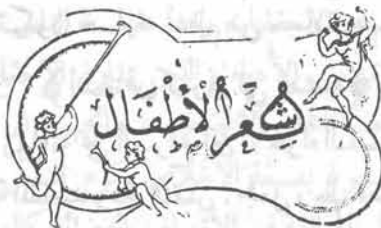 شِعْرُ الأَطْفَال